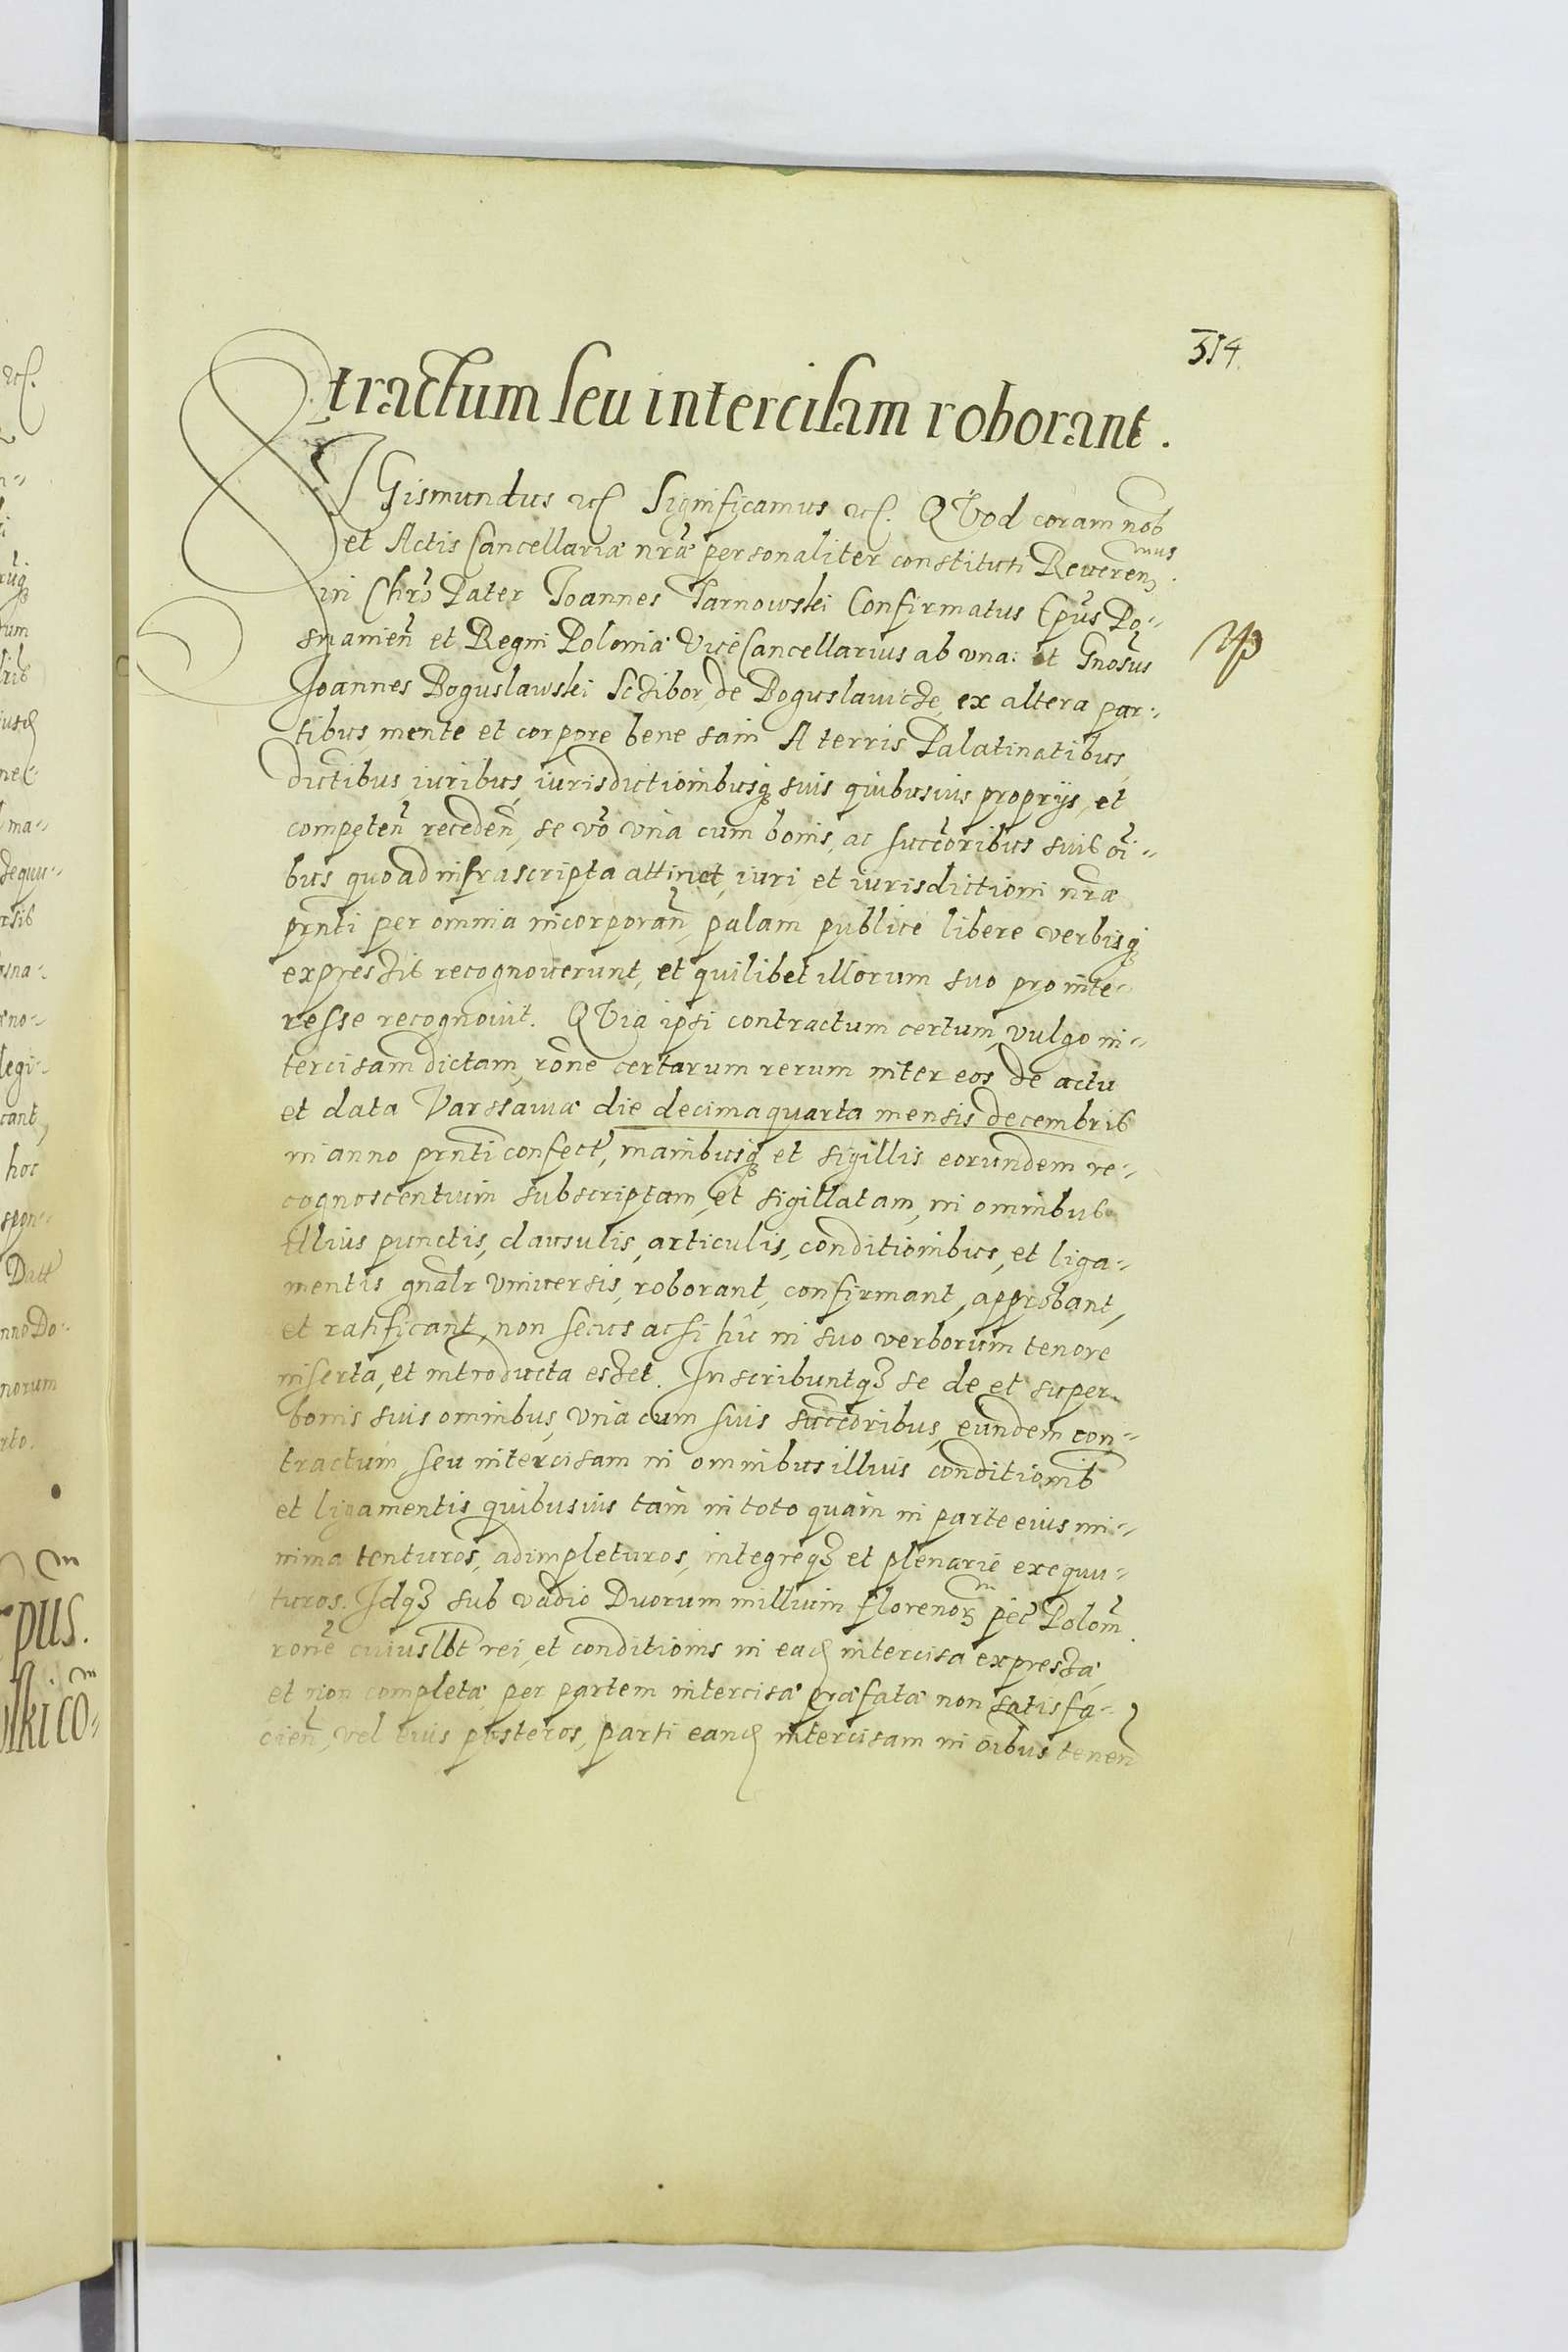 314
tractum seu intercisam roborant.
SIGismundus etc. Significamus etc. QVod coram nob
et Actis Cancellariæ nræ personaliter constituti Reueren⁊mus
in Chro Pater Ioannes Tarnowski Confirmatus Epus Po=
snanien et Regni Poloniæ ViceCancellarius ab vna: et Gnosus
Ioannes Boguslawski Sczibor, de Boguslawicze, ex altera par=
tibus, mente et corpore bene sani A terris Palatinatibus,
dictibus iuribus, iurisdictionibusq3 suis quibusuis proprijs, et
competen receden, se vo vna cum bonis, ac succoribus suis oi=
bus quoad infrascripta attinet, iuri et iurisdictioni nræ
prnti per omnia incorporan, palam publice libere verbisq3
expressis recognouerunt, et quilibet illorum suo pro inte=
resse recognouit. QVia ipsi contractum certum, vulgo in=
tercisam dictam, rone certarum rerum inter eos de actu
et data Varssauiæ die decimaquarta mensis decembris
in anno prnti confect, manibusq3 et sigillis eorundem re=
cognoscentium subscriptam, et sigillatam, in omnibus
illius punctis, clausulis, articulis, conditionibus, et liga=
mentis gnalr vniuersis, roborant, confirmant, approbant,
et ratificant, non secus ac si hic in suo verborum tenore
inserta, et introducta esset. Inscribuntq3 se de et super
bonis suis omnibus, vna cum suis succoribus, eundem con=
tractum seu intercisam in omnibus illius conditionib
et ligamentis quibusuis tam in toto quam in parte eius mi=
nima tenturos, adimpleturos, integreq3 et plenarie exequu=
turos. Idq3 sub vadio Duorum millium florenor pec Polom
rone cuiuslbt rei, et conditionis in ead intercisa expressæ
et non completæ per partem intercisæ præfatæ non satisfa=
cien, vel eius posteros, parti eand intercisam in oibus tenen